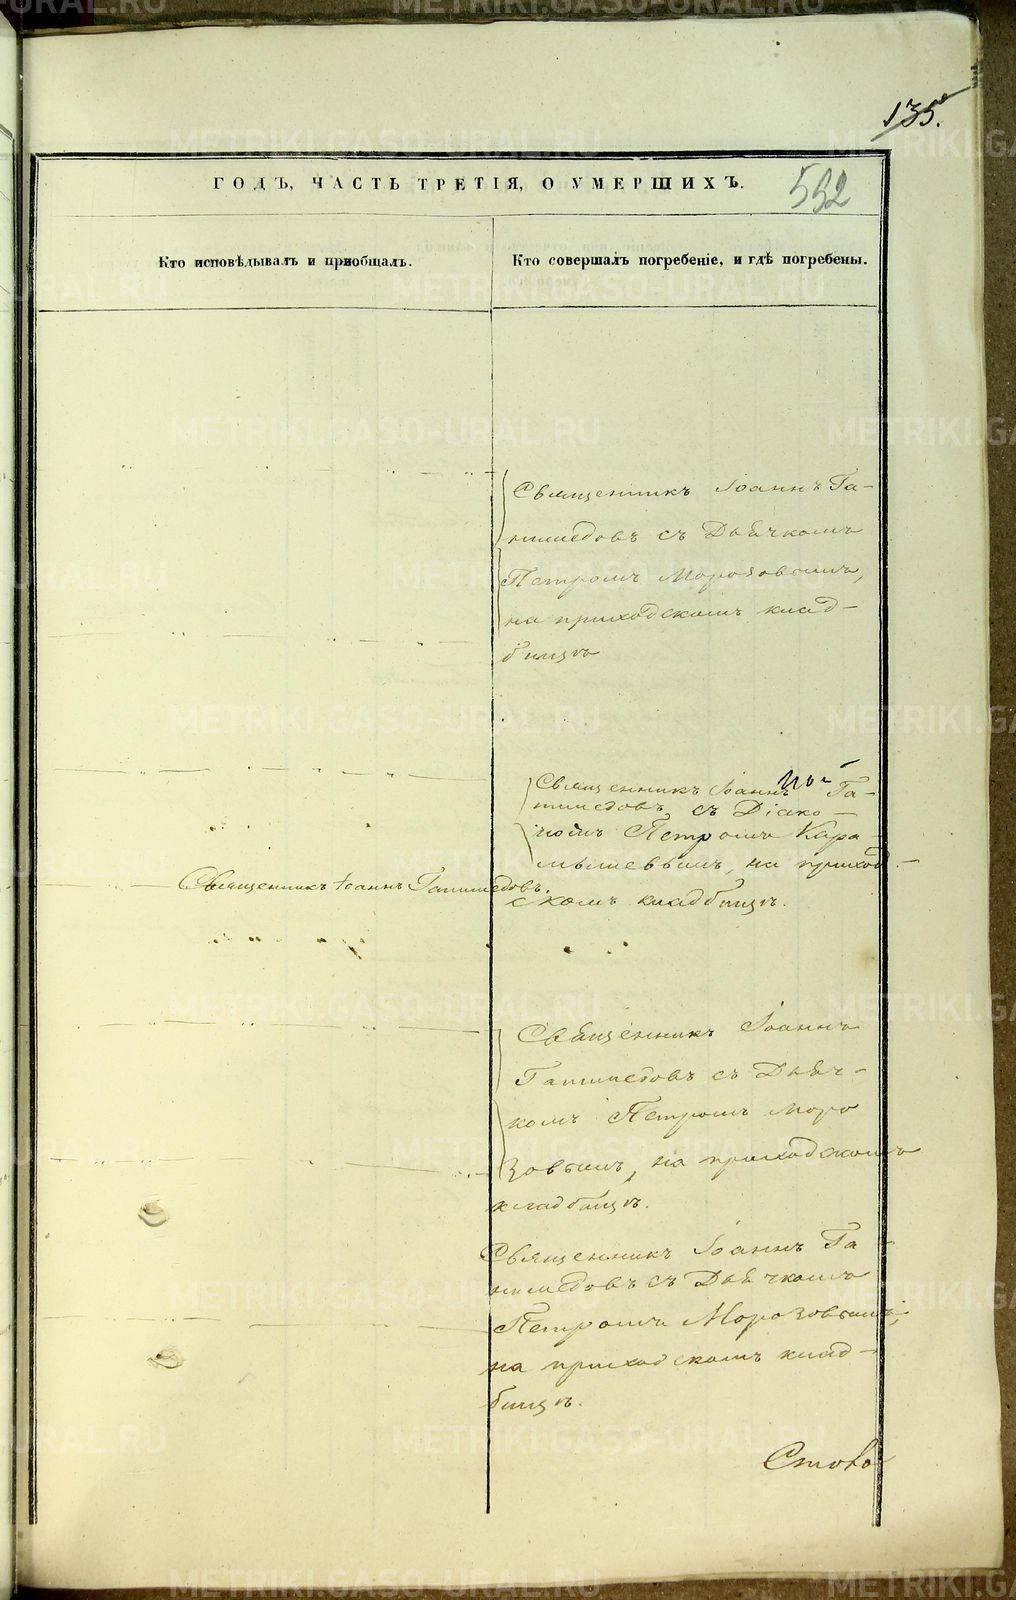 135.
ГОДЪ, ЧАСТЬ ТРЕТІЯ, О УМЕРШИХЪ.
592
Кто исповѣдывалъ и пріобщалъ.
Кто совершалъ погребеніе, и гдѣ погребены.
Священникъ Іоаннъ Га-
нимедовъ съ Дьячкомъ
Петромъ Морозовымъ,
на приходскомъ клад-
бищѣ
Священникъ Іоаннъ Га-
нимедовъ, съ Діако-
номъ Петромъ Кара-
мышевымъ, на приход-
скомъ кладбищѣ.
Священникъ Іоаннъ Ганимедовъ.
Священникъ Іоаннъ
Ганимедовъ съ Дьяч-
комъ Петромъ Моро
зовымъ, на приходскомъ
кладбищѣ.
Священникъ Іоаннъ Га-
нимедовъ съ Дьячкомъ
Петромъ Морозовымъ,
на приходскомъ клад-
бищѣ.
METRIKI.GASO-URAL.RU